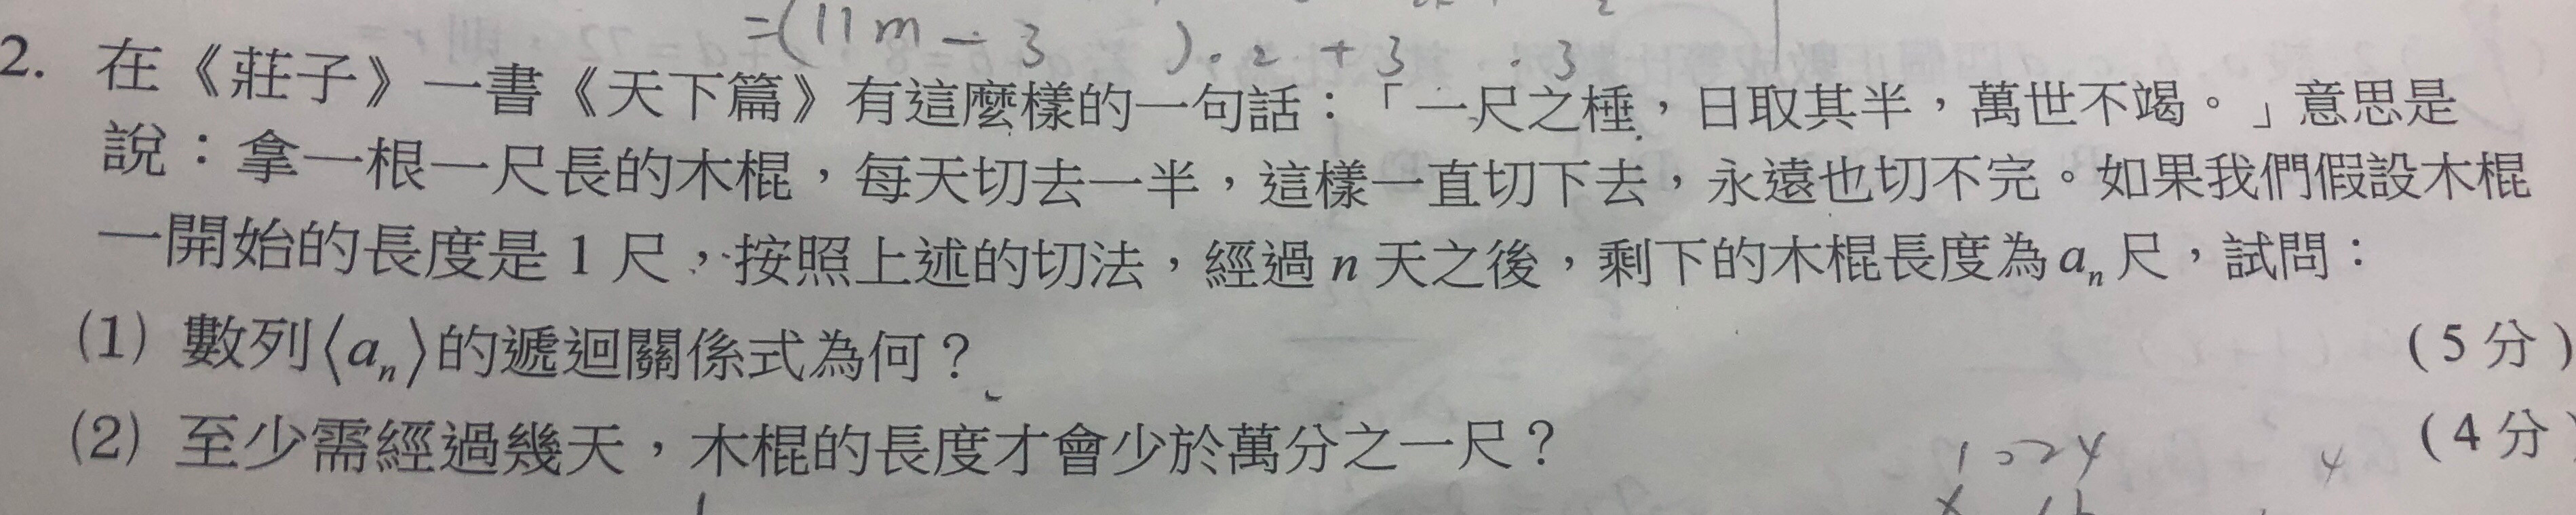 =(11m-3 ).2+3 .3
2. 在《莊子》一書《天下篇》有這麼樣的一句話:「一尺之棰,日取其半,萬世不竭。」意思是
說:拿一根一尺長的木棍,每天切去一半,這樣一直切下去,永遠也切不完。如果我們假設木棍
一開始的長度是 1 尺,按照上述的切法,經過 n 天之後,剩下的木棍長度為 aₙ 尺,試問:
(1) 數列⟨aₙ⟩的遞迴關係式為何? (5分)
(2) 至少需經過幾天,木棍的長度才會少於萬分之一尺? (4分
1024